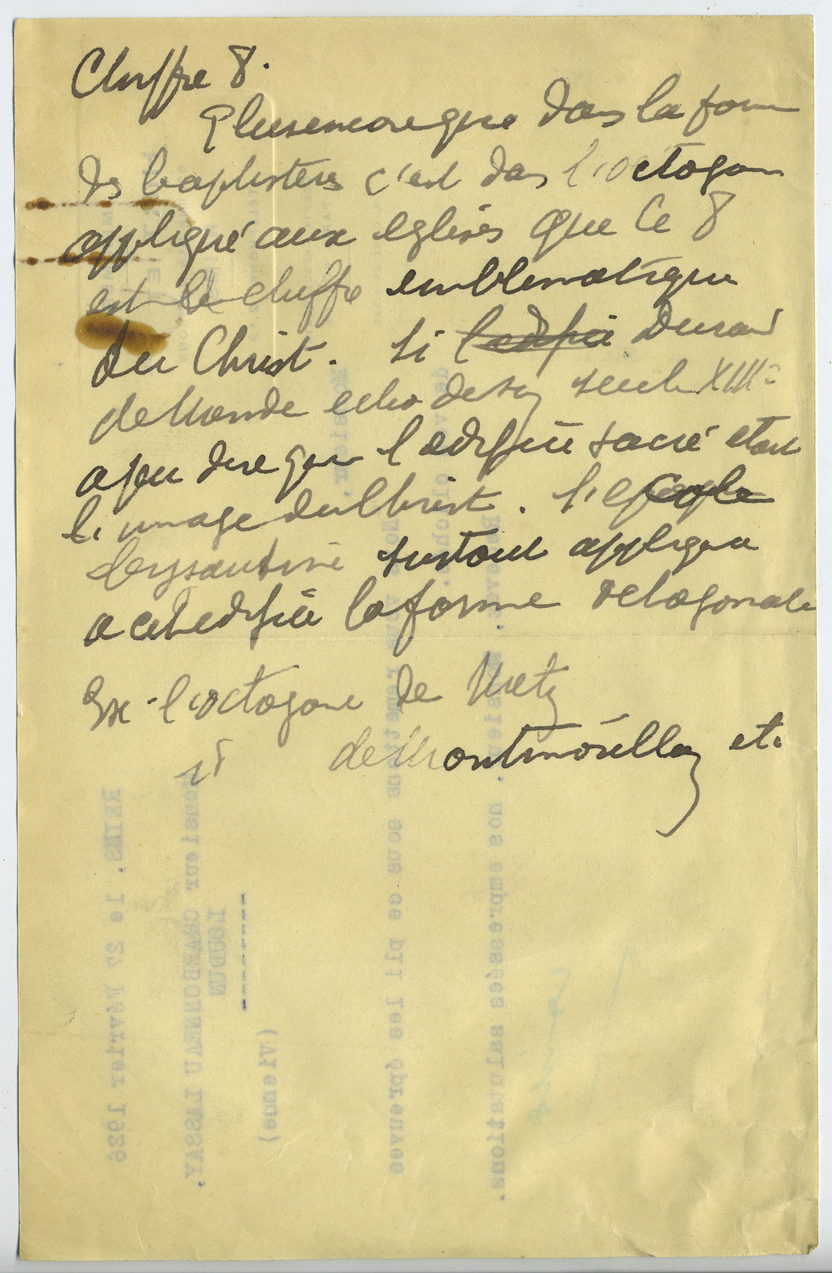 Chiffre 8.
Plus encore que dans la forme
des baptistères c'est dans l'octogone
appliqué aux églises que ce 8
est le chiffre emblématique
du Christ. Si l'édifice Durand
de Mende echo de son siècle XIIIe
a pu dire que l'édifice sacré était
l'image du Christ. l'école
byzantine surtout appliqua
a cet édifice la forme octogonale
Ex. l'octogone de Metz
id de Montmorillon etc
REIMS, le 27 Février 1926
Monsieur CHARBONNEAU LASSAY,
LOUDUN
(Vienne)
Monsieur,
Nous vous remettons sous ce pli les épreuves
de vos clichés.
Recevez, Monsieur, nos empressées salutations.